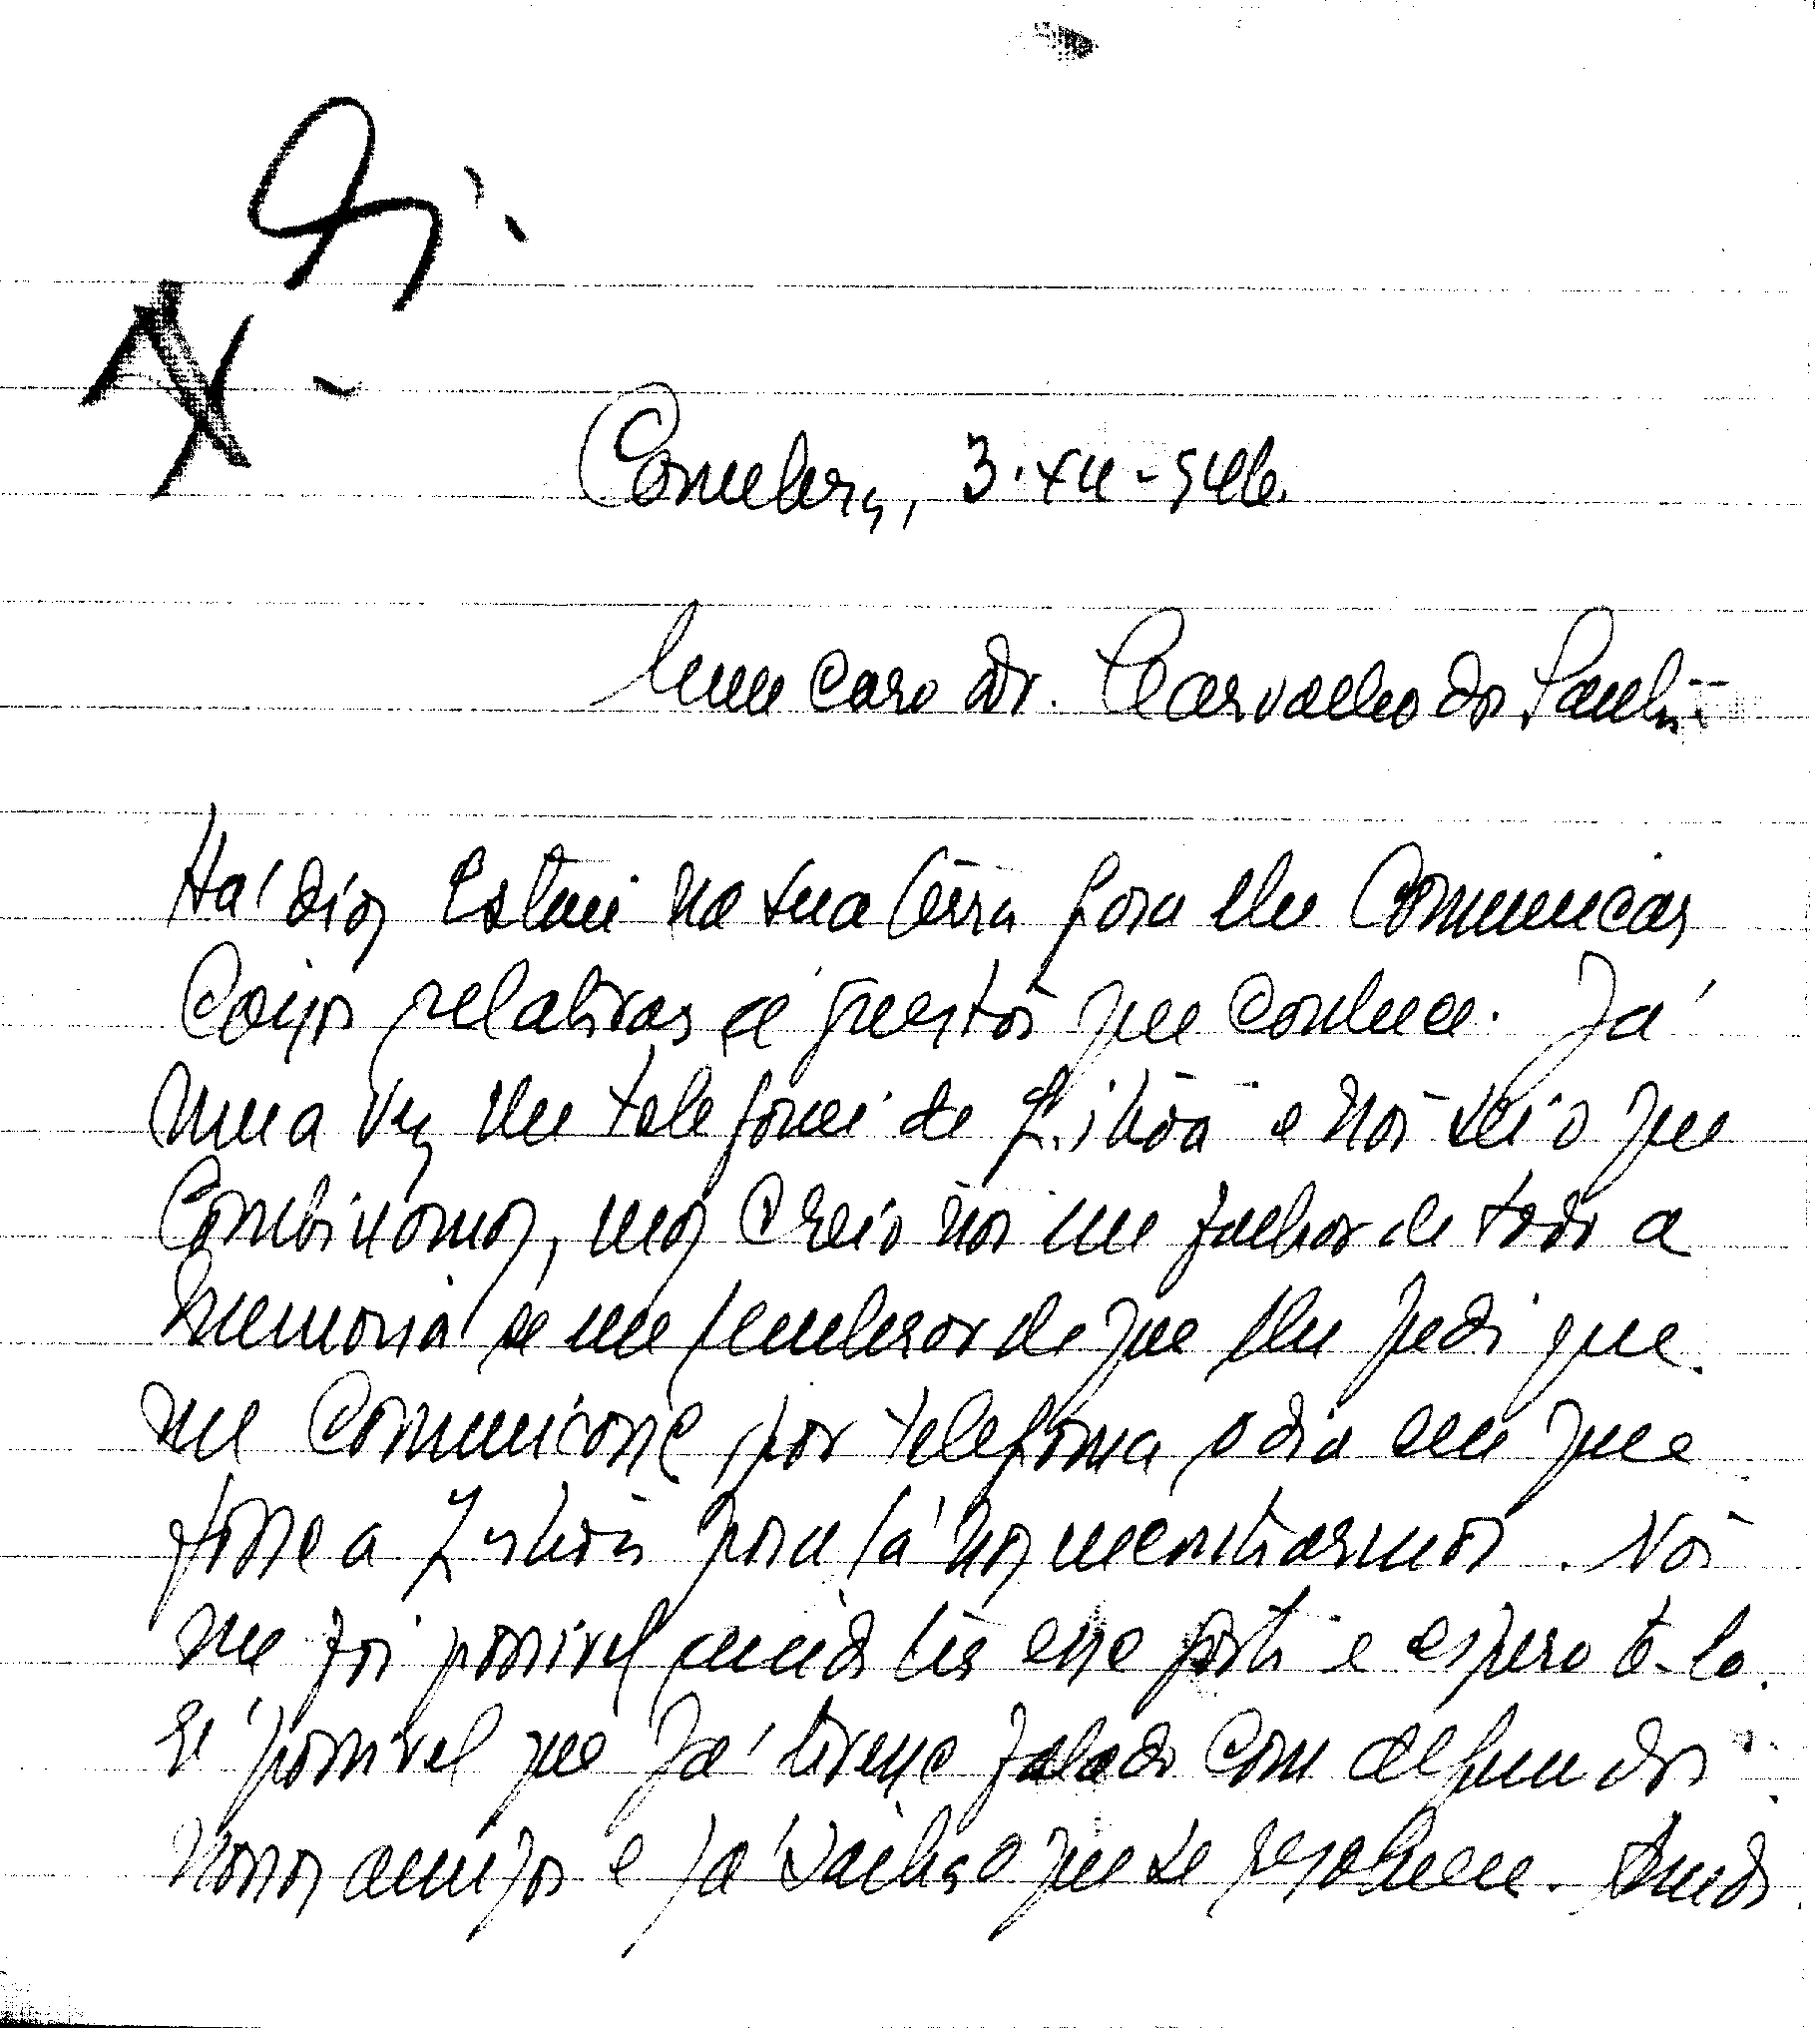 Coimbra, 3-XII-946.
Meu caro Dr. Carvalho dos Santos
Há dias estive na sua terra para lhe comunicar
coisas relativas á questão que conhece. Já
uma vez lhe telefonei de Lisboa e não sei o que
combinamos, mas creio não me falhar de todo a
memoria se me lembrar de que lhe pedi que
me comunicasse, por telefone, o dia em que
fosse a Lisboa para lá nos encontrarmos. Não
me foi possivel ainda ter esse gosto e espero tê-lo.
É possivel que já tivesse falado com algum dos
nossos amigos e já saiba o que se resolveu. Ainda